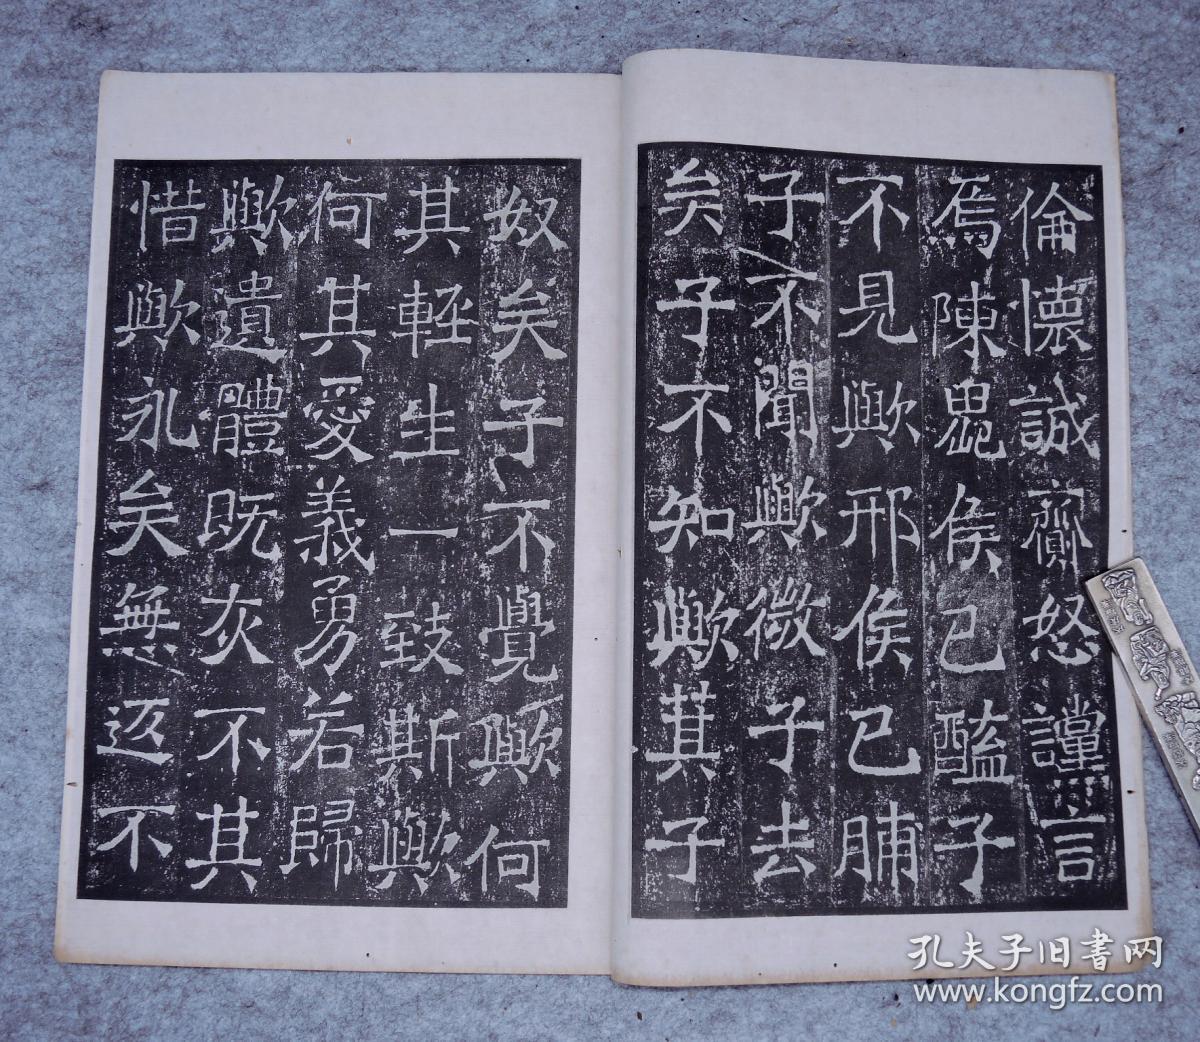 倫懷誠齋怒讜言
焉陳鬼侯已醢子
不見歟邢侯已脯
子不聞歟微子去
矣子不知歟萁子
奴矣子不覺歟何
其輕生一致斯歟
何其愛義勇若歸
歟遺體既灰不其
惜歟永矣無返不
孔夫子旧書网
www.kongfz.com